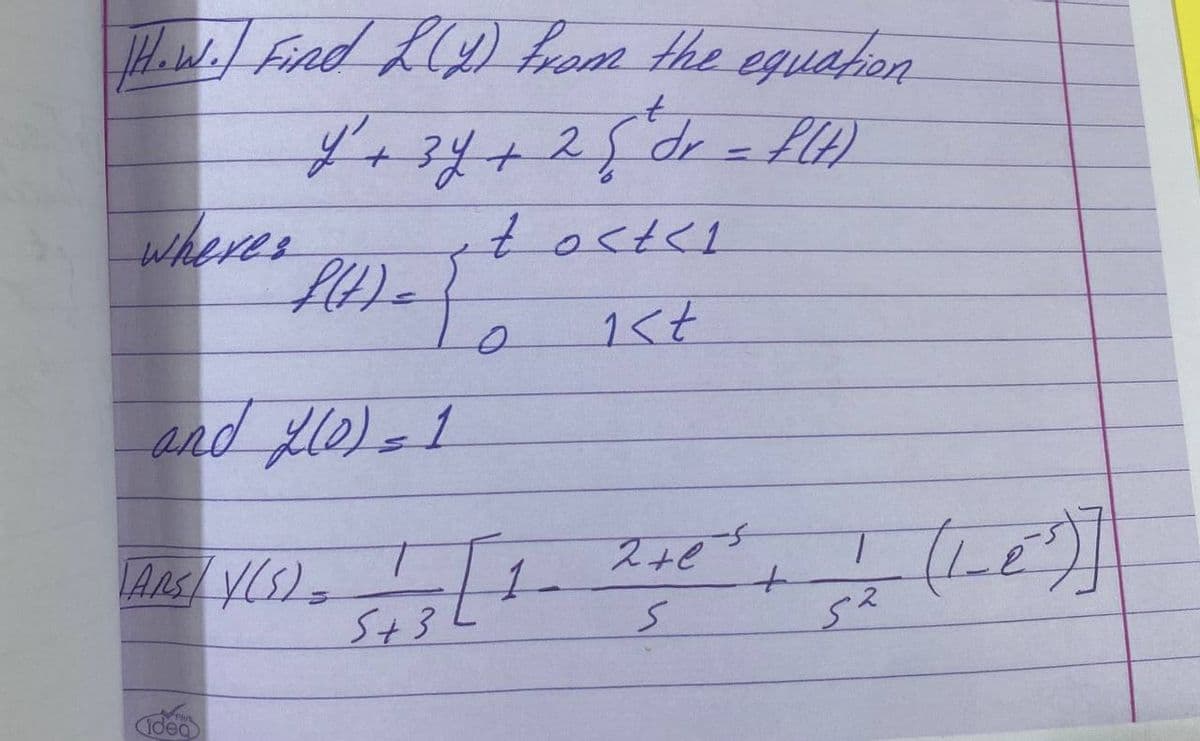 [H.W.] Find ℒ(y) from the equation
y' + 3y + 2 ∫₀ᵗ dr = f(t)
where:
f(t) = { t 0<t<1
0 1<t
and y(0) = 1
[Ans/ Y(s) = 1/(s+3) [1 - (2+e^-s)/s + 1/s² (1-e^-s)]
Idea